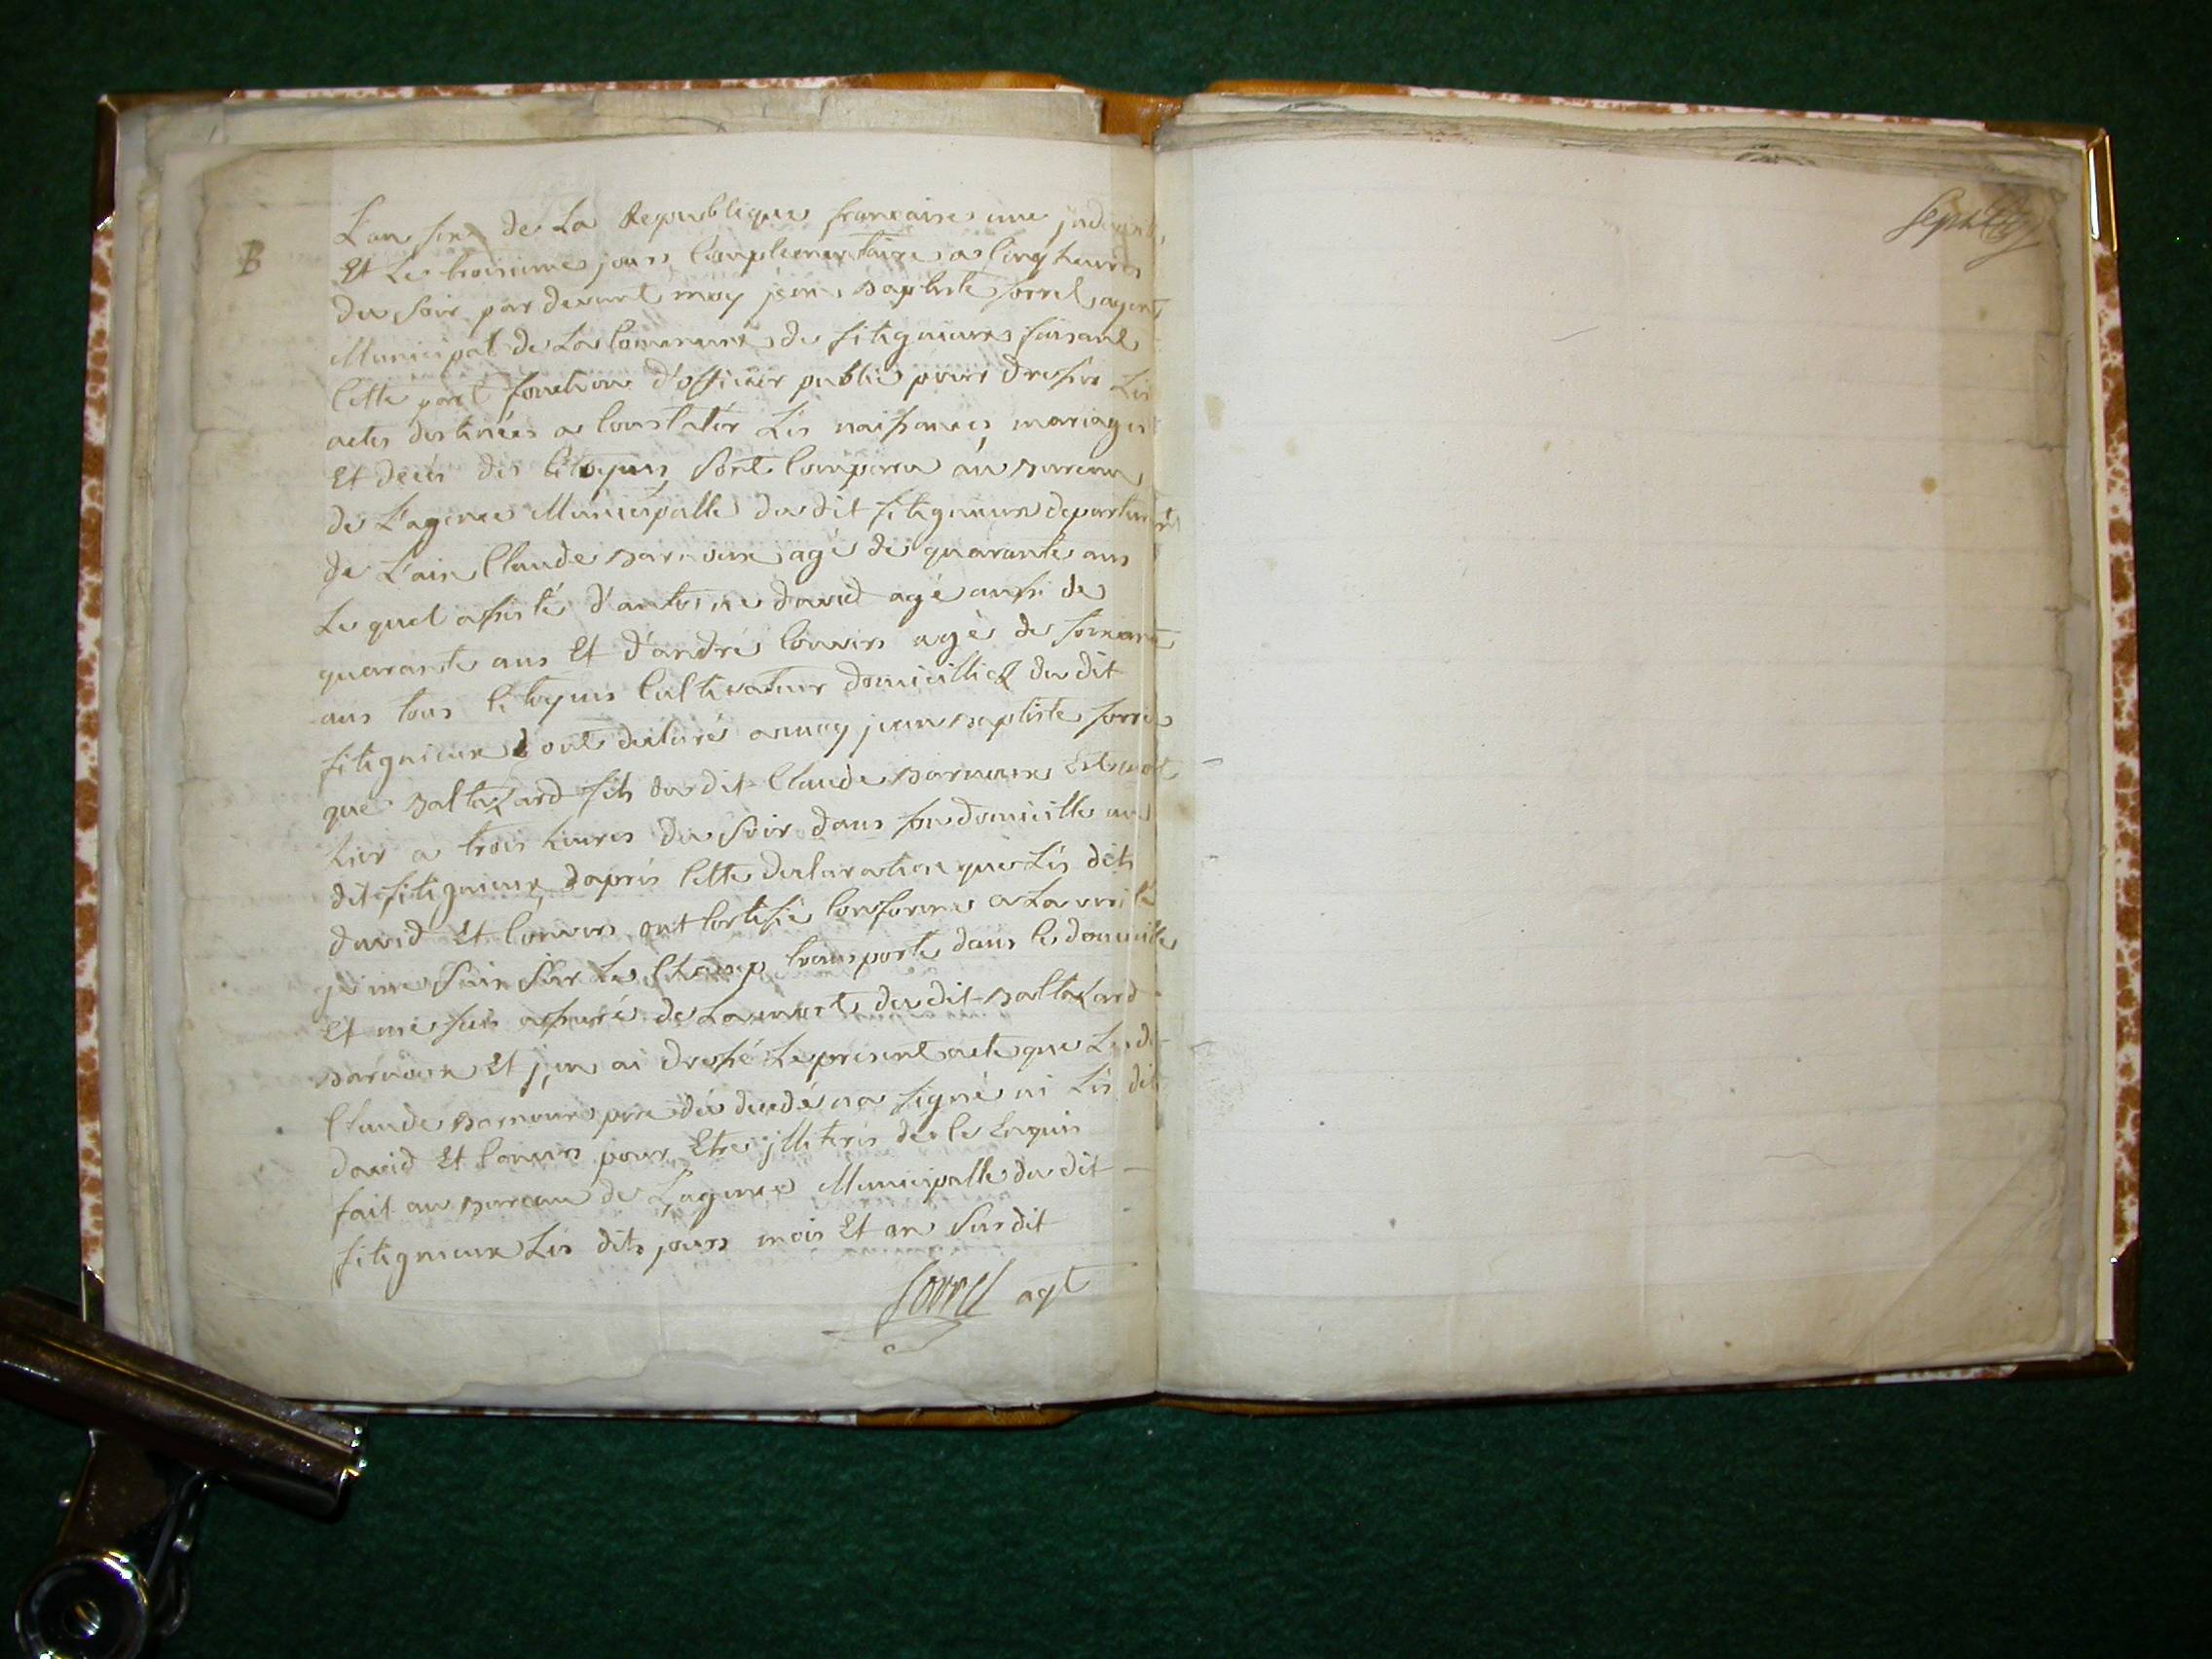 B
L'an six de la Republique francaise une
Et Le troisieme jour Complementaire a Cinq heures
du Soir par devant moy jean Baptiste sorrel agent
Municipal de La Commune de fitignieux faisant
Cette part fonction d'officier public pour dresser Les
actes destinées a Constater Les naissances, mariages
Et décés des Citoyens, Sont Comparu au Bureau
de L'agence Municipalle du dit fitignieux departement
de L'ain Claude Barnoux agé de quarante ans
Le quel assisté d'antoine david agé aussi de
quarante ans Et d'andré Convers agé de soixante
ans tous Citoyens Cultivateur domicilliez du dit
fitignieux ont declaré a moy jean Baptiste sorrel
que Baltazard fils du dit Claude Barnoux Est mort
hier a trois heures du Soir dans son domicille au
dit fitignieux, dapres Cette declaration que Les dits
david Et Convers ont Certifié Conforme a La verité
je me Suis Sur Le Champ transporté dans le domicille
Et me suis assuré de La mort du dit Baltazard
Barnoux Et j'en ai dressé Le present acte que Le dt
Claude Barnoux pere du decedé na signé ni Les dits
david Et Convers pour Etre jlliterés de Ce Enquis
fait au Bureau de L'agence Municipalle du dit
fitignieux Les dits jours mois Et an Sus dit
Sorrel agt